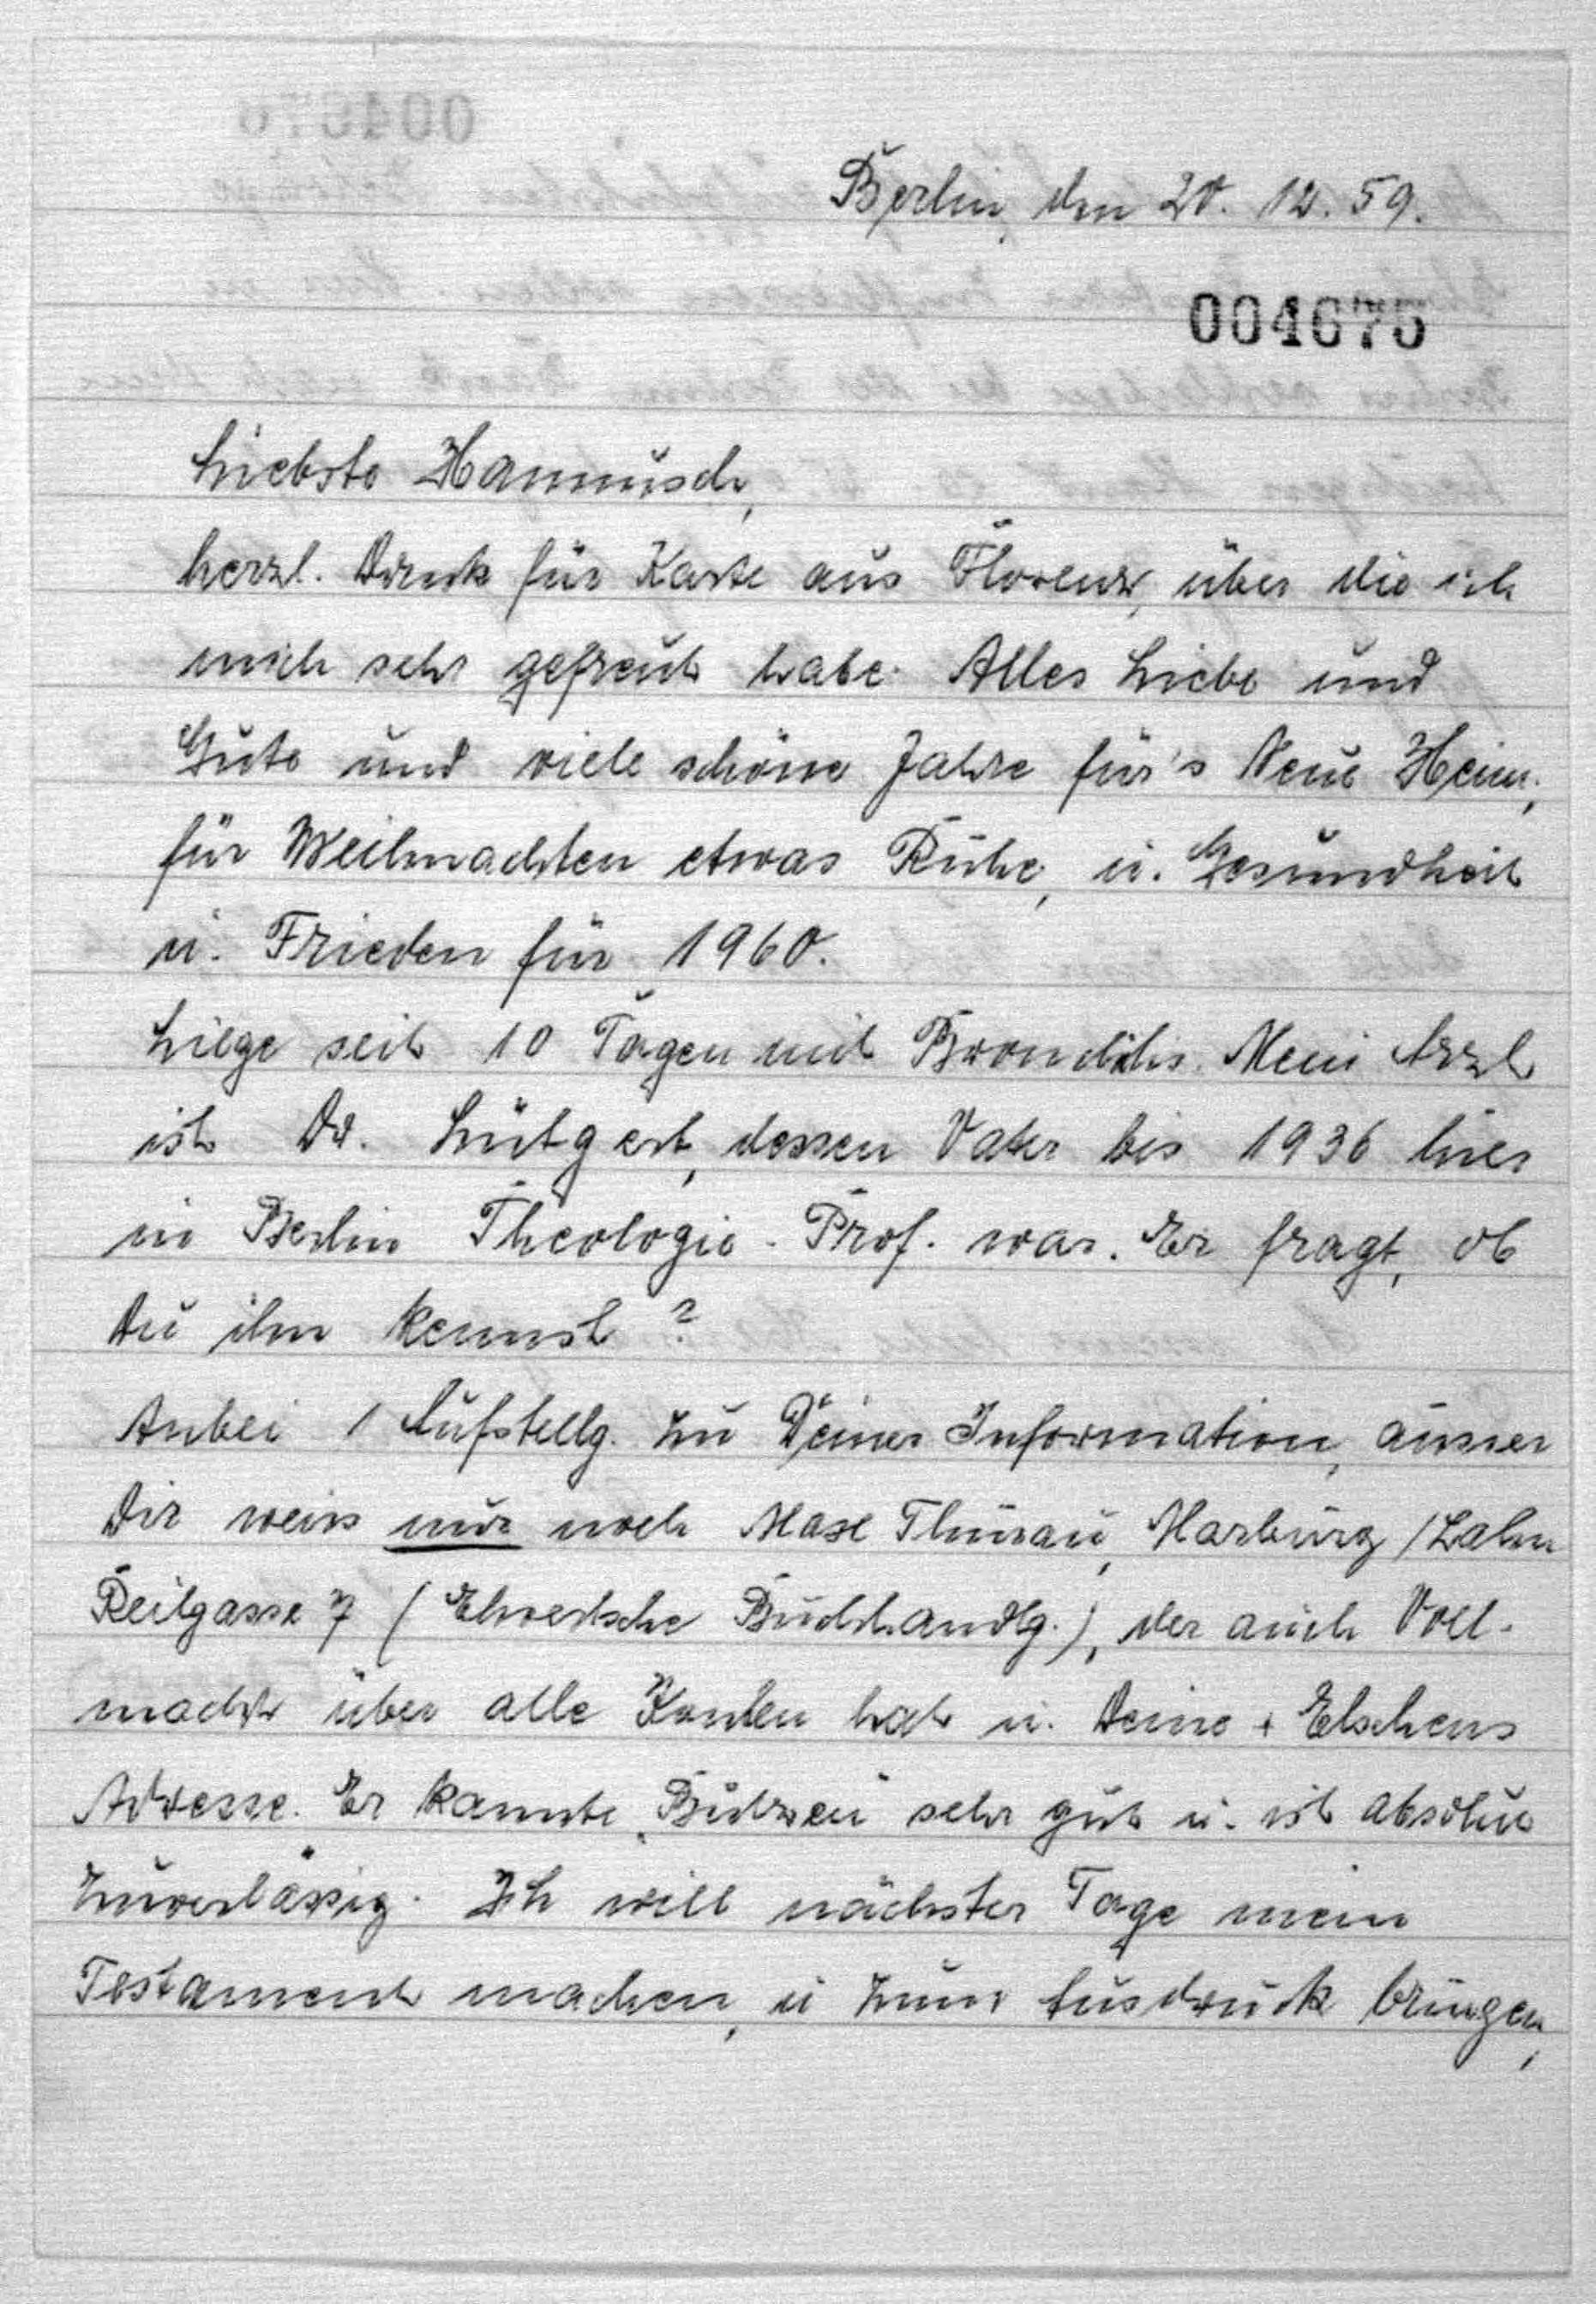 Berlin, den 20. 12. 59.
004675
Liebste Hannusch,
herzl. Dank für Karte aus Florenz, über die ich
mich sehr gefreut habe. Alles Liebe und
Gute und viele schöne Jahre für's Neue Heim,
für Weihnachten etwas Ruhe, u. Gesundheit
u. Frieden für 1960.
Liege seit 10 Tagen mit Bronchitis. Mein Arzt
ist Dr. Lütgert, dessen Vater bis 1936 hier
in Berlin Theologie-Prof. war. Er fragt, ob
Du ihn kennst?
Anbei 1 Aufstellg. zu Deiner Information, ausser
Dir weiss nur noch Maxe Thurau, Marburg / Lahn
Reitgasse 7 (Elwertsche Buchhandlg.), der auch Voll-
macht über alle Konten hat u. Deine + Elschens
Adresse. Er kannte sehr gut u. ist absolut
zuverlässig. Ich will nächster Tage mein
Testament machen, u zum Ausdruck bringen,